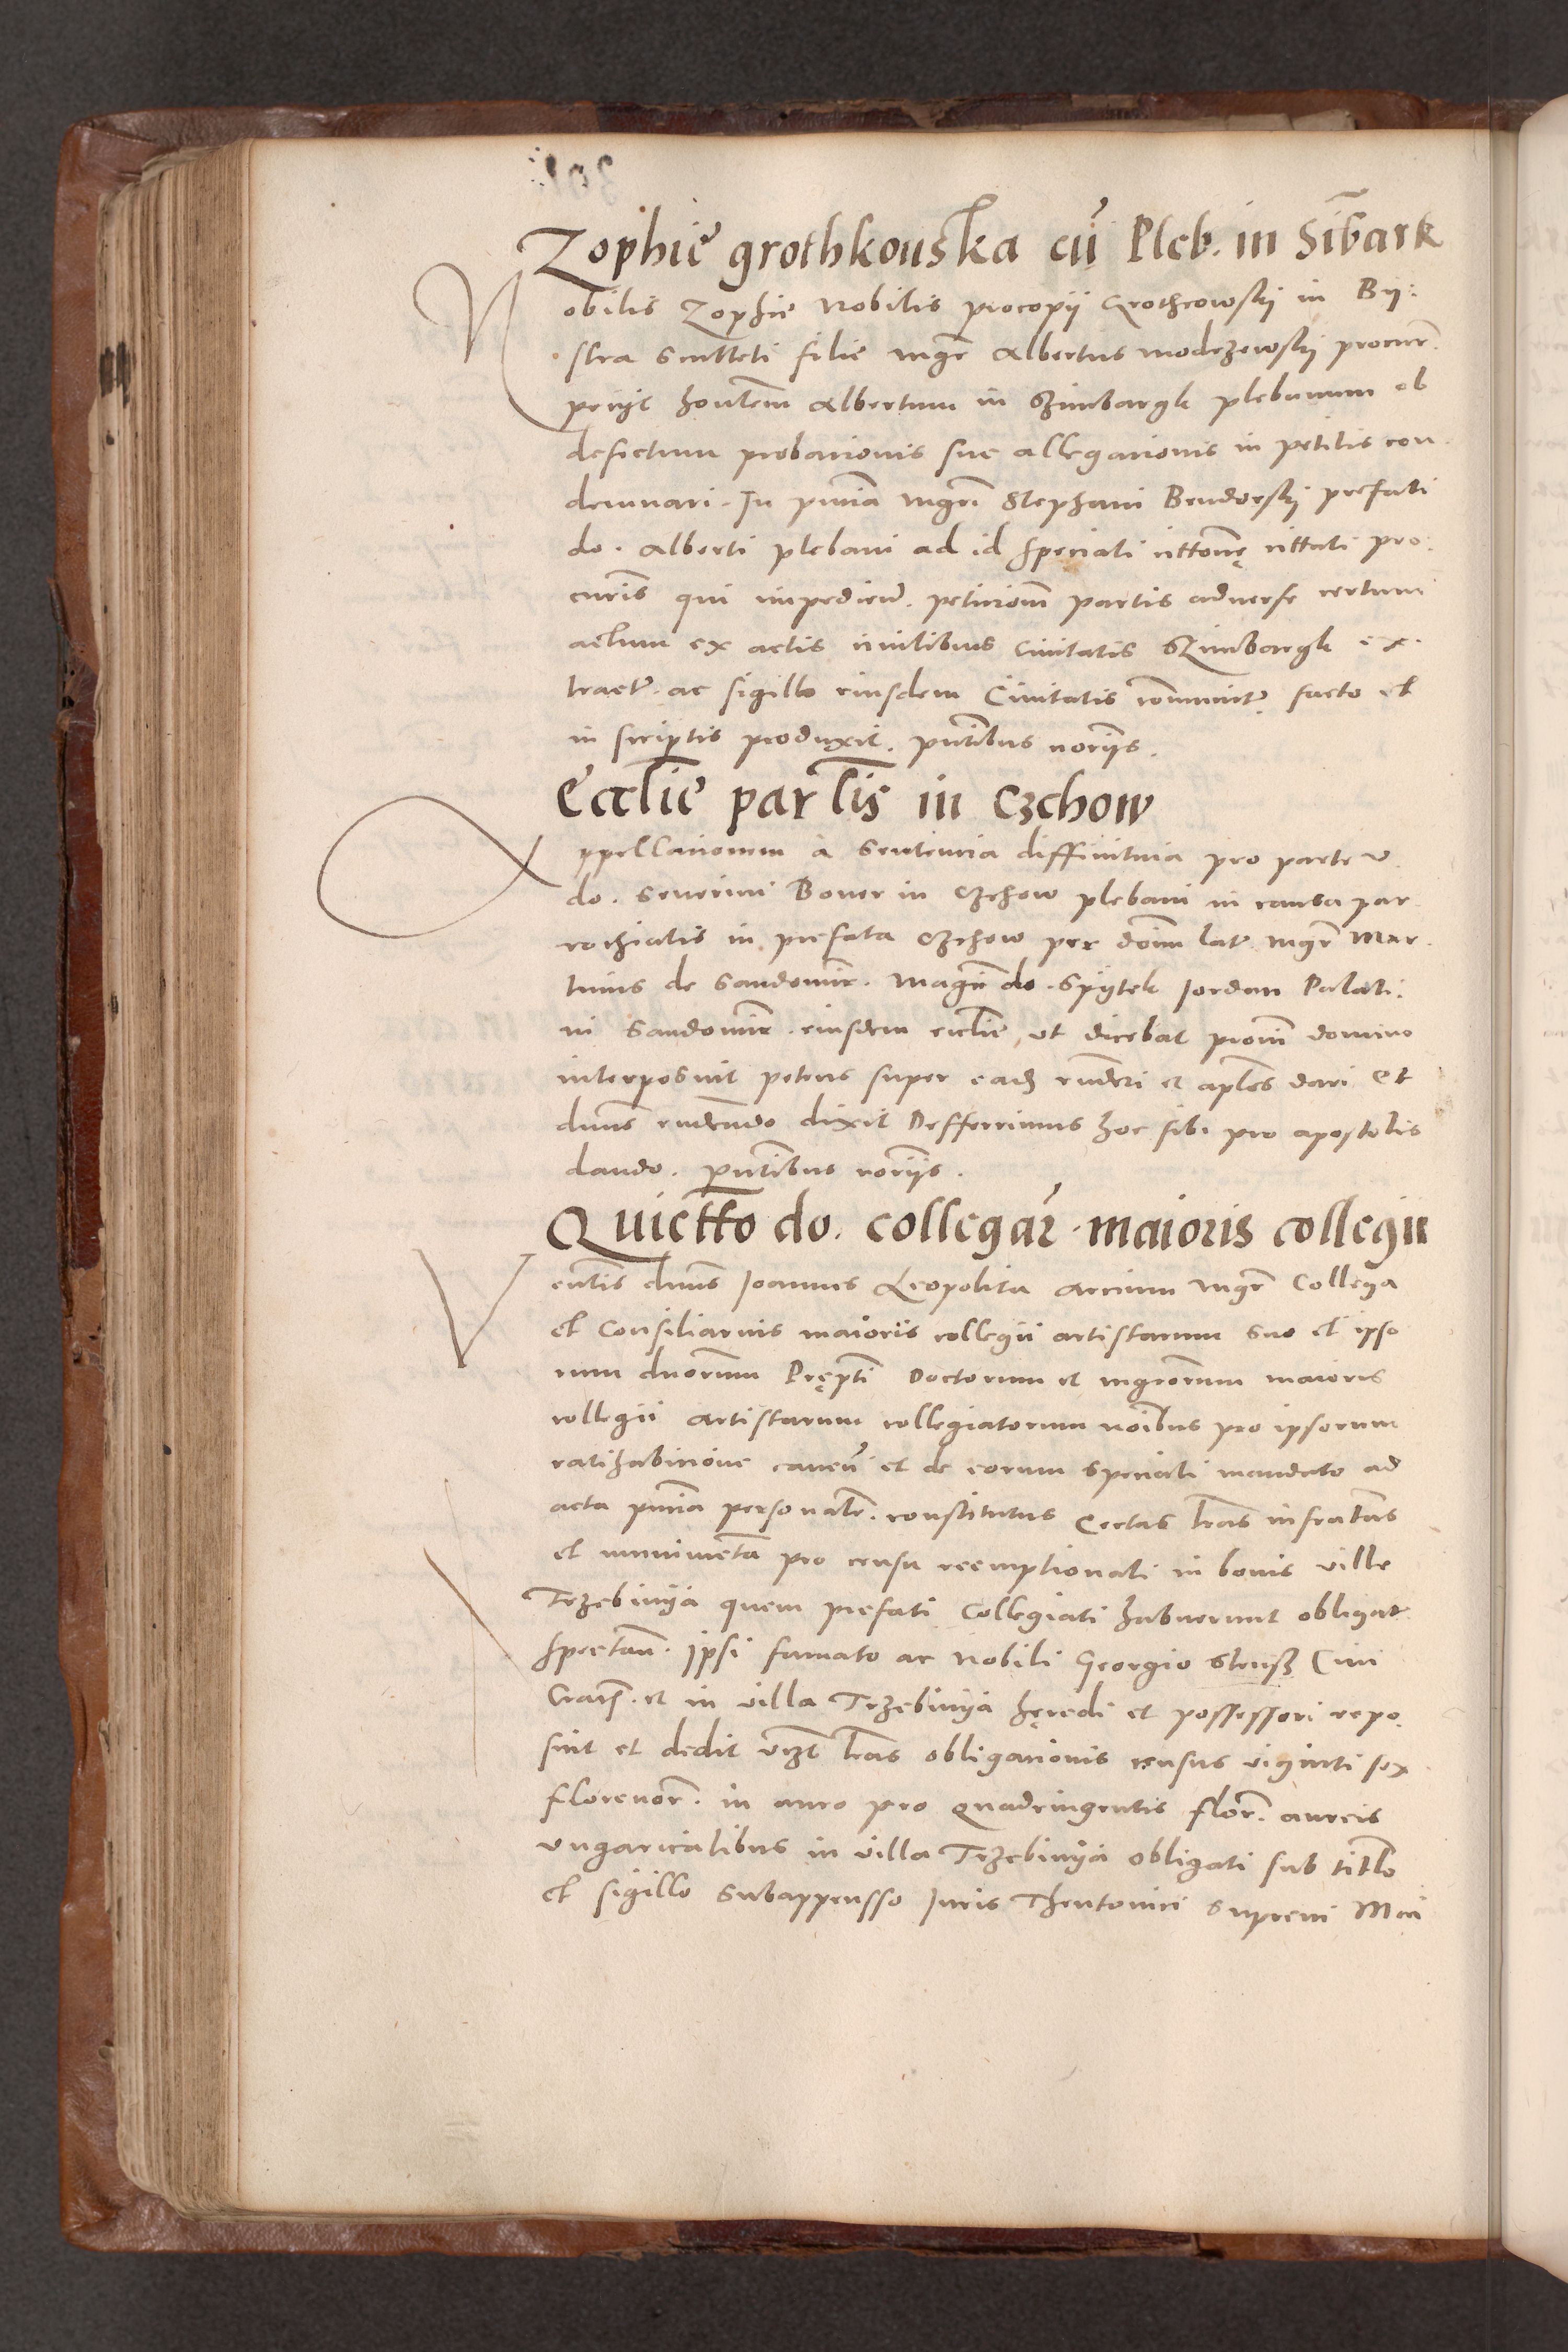 Zophie grothkouska cu Pleb. in Sibark
Nobilis Zophie Nobilis procopii Grothcowskj in Bij:
stra Sculteti filie mgr Albertus modrzewskj procur.
petijt honlem Albertum in Szimbargk plebanum ob
defectum probacionis sue allegacionis in petitis con
demnari. In pntia mgri Stephani Bendorskj prefati
do. Alberti plebani ad id speciali citati pro.
curis qui impediend. peticionem partis adverse certum
actum ex actis civilibus Civitatis Szimbargk ex.
tract. ac sigillo eiusdem Civitatis comunit. facto et
in scriptis produxit. pntibus noriis.
Ecclie parlis in Czchow
Appellacionem a Sentencia diffinitiva pro parte v.
do. Severini Boner in Czchow plebani in causa par
rochialis in prefata Czchow per dom lat. mgr Mar.
tinus de Sandomir. Magci do. Spijtek Jordan Palati.
ni Sandomir. eiusdem ecclie ut dicebat domino
interposuit petens super eadz et aplos dari Et
dnus dixit Defferimus hoc sibi pro apostolis
dando. pntibus noriis.
Quietto do. collegar. maioris collegii
Venies dnus Joannes Leopolita Arcium mgr Collega
et Consiliarius maioris collegii artistarum suo et ipso
rum dnorum Doctorum et mgrorum maioris
collegii Artistarum collegiatorum noibus pro ipsorum
ratihabicione caven. et de eorum speciali mandato ad
acta pntia personalr. constitutus Certas lras infratas
et munimenta pro censu reemptionali in bonis ville
Trzebinija quem prefati Collegiati habuerunt obligat.
spectan. Ipsi famato ac Nobili Georgio Civi
Crac. et in villa Trzebinija heredi et possessori repo.
suit et dedit vzt lras obligacionis census viginti sex
florenor. in auro pro quadringentis flor. aureis
ungaricalibus in villa Trzebinija obligati sub titlo
et sigillo subappensso Juris Theutonici Supremi